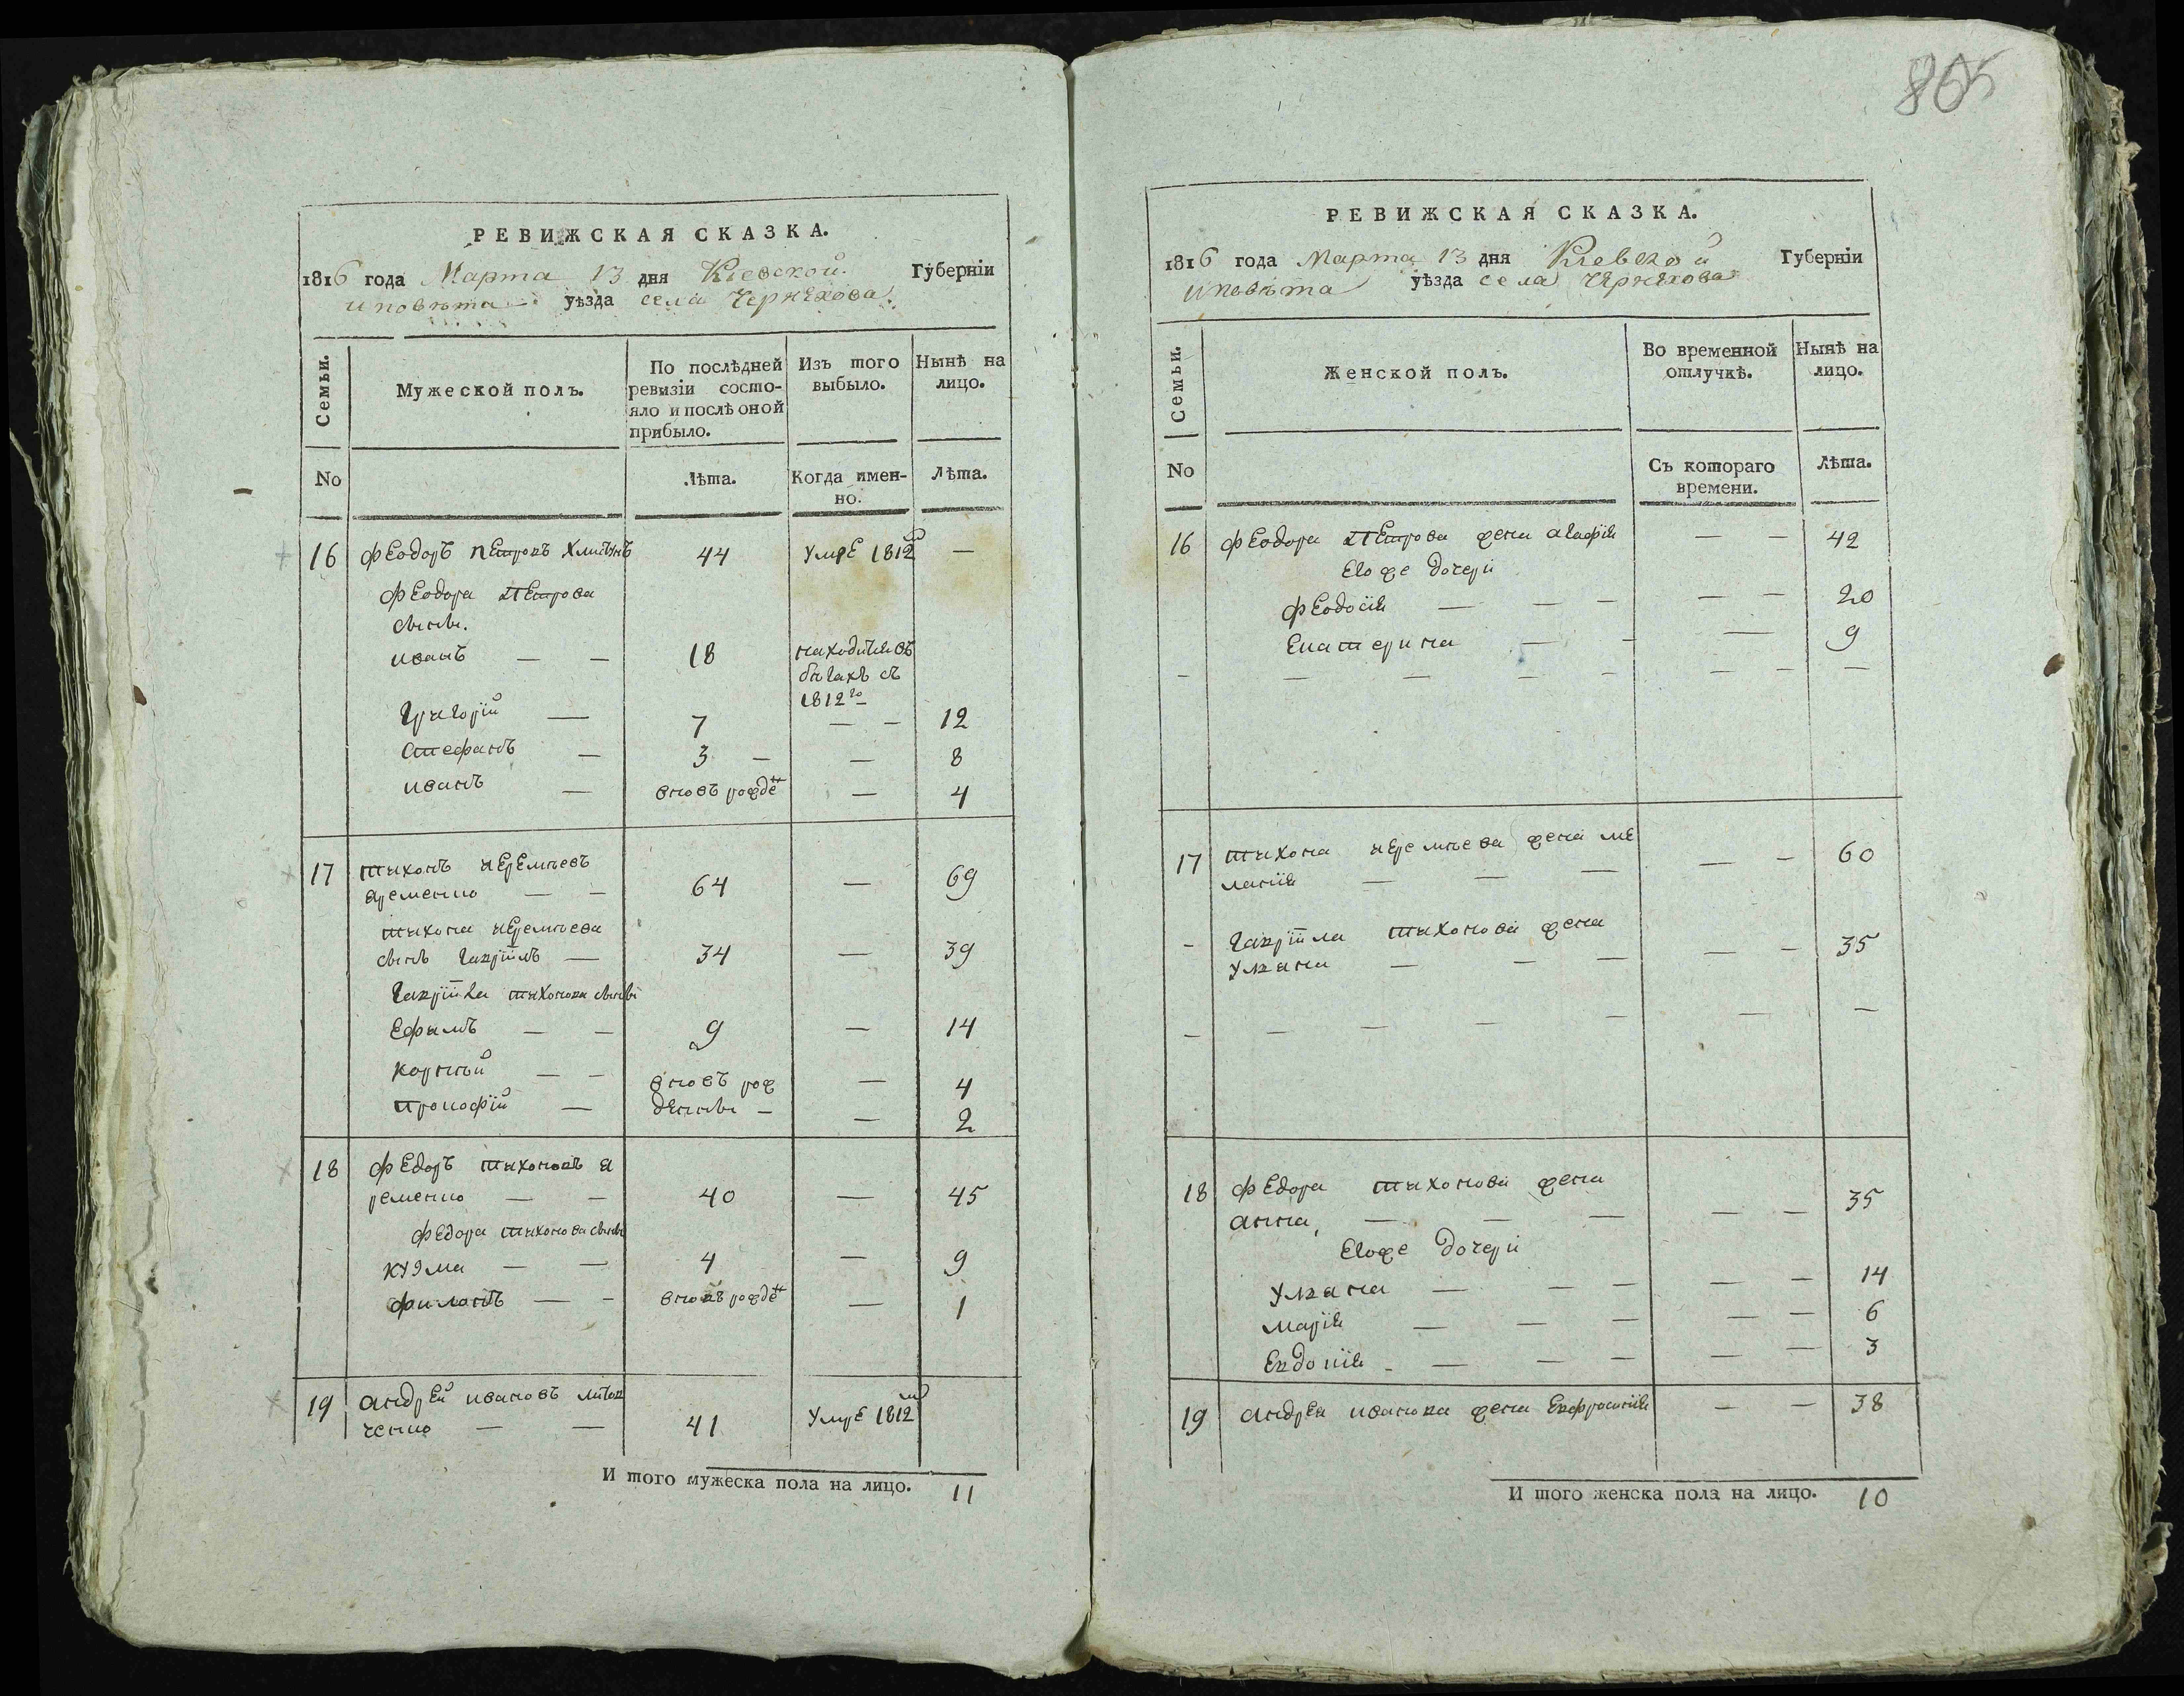 865
РЕВИЖСКАЯ СКАЗКА.
1816 года Марта 13 дня Кіевской Губерніи
и повѣта уѣзда села Черняхова
Семьи.
Мужеской полъ.
По послѣдней ревизіи состо-
яло и послѣ оной
прибыло.
Изъ того
выбыло.
Нынѣ на
лицо.
No
Лѣта.
Когда имен-
но.
Лѣта.
16 Феодоръ Петровъ 44 Умре 1812 —
Феодора Петрова
сыны.
иванъ — — 18 находится въ
бѣгахъ съ
1812го
Григорій — 7 — — 12
Стефанъ — 3 — — 8
иванъ — вновь рожде — 4
17 тихонъ яремѣевъ
яременко — — 64 — 69
тихона яремѣева
сынъ Гавріилъ — 34 — 39
Гавріила тихонова сыны
Ефимъ — — 9 — 14
Корнѣй — — вновь рож — 4
прокофій — денны — — 2
18 Федоръ тихоновъ я
ременко — — 40 — 45
Федора тихонова сыны
кузма — — 4 — 9
филонъ — — вновь рожде — 1
19 андрей ивановъ
ченко — — 41 Умре 1812
И того мужеска пола на лицо. 11
РЕВИЖСКАЯ СКАЗКА.
1816 года Марта 13 дня Кіевской Губерніи
и повѣта уѣзда села Черняхова
Семьи.
Женской полъ.
Во временной
отлучкѣ.
Нынѣ на
лицо.
No
Съ котораго
времени.
Лѣта.
16 Феодора Петрова жена агафія — — 42
Его же дочери
Феодосія — — — — — 20
Екатерина — — — 9
— — — — — — — —
17 тихона яремѣева жена ме
ланія — — — — — 60
- Гавріила тихонова жена
Уляна — — — — — 35
— — — — — — —
18 Федора тихонова жена
анна — — — — — 35
Его же дочери
Уляна — — — — — 14
Марія — — — — — 6
Евдокія — — — — — — 3
19 андрея иванова жена Евфросинія — — 38
И того женска пола на лицо. 10